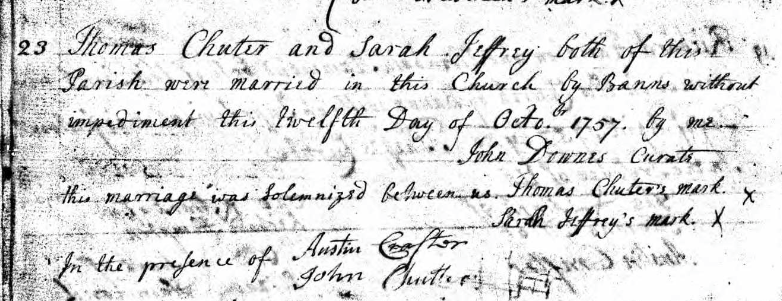 mark X
23 Thomas Chuter and Sarah Jeffrey both of this
Parish were married in this Church by Banns without
impediment this twelfth Day of Octo.br 1757. by me
John Downes Curate
this marriage was Solemnizd between us. Thomas Chuter's mark. X
Sarah Jeffrey's mark. X
In the presence of Austin Crafter
John Chutter